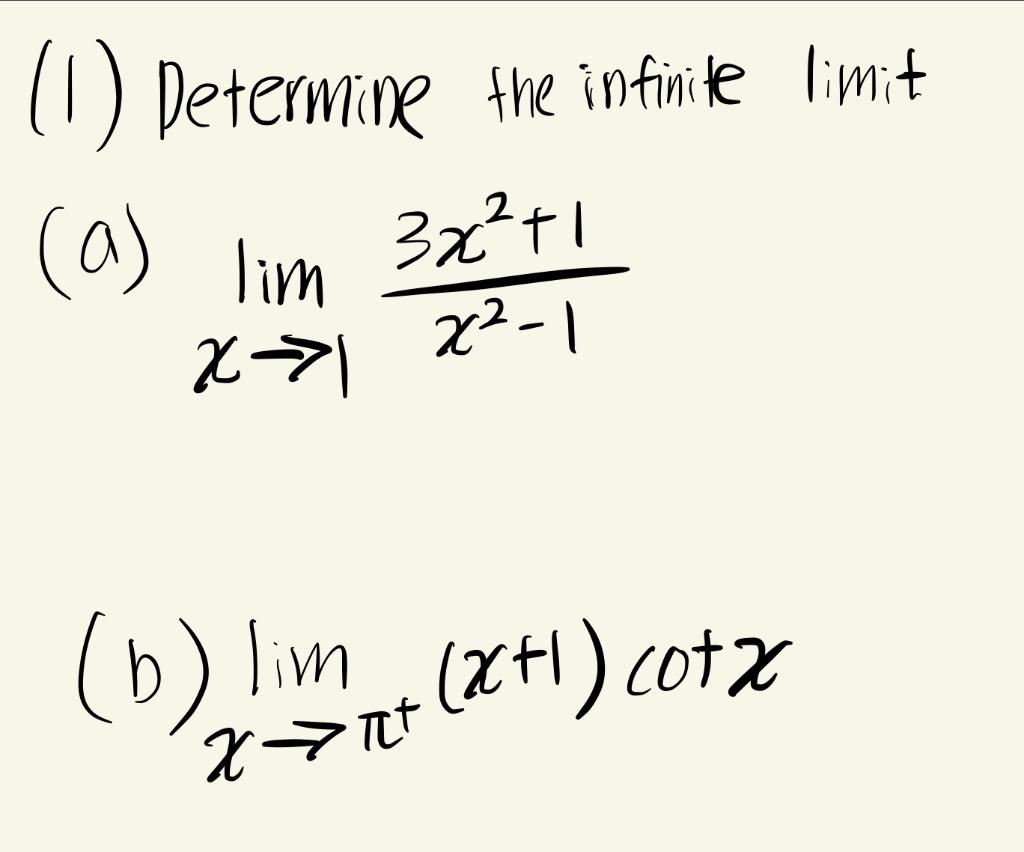 (1) Determine the infinite limit
(a) lim x→1 (3x²+1)/(x²-1)
(b) lim x→π⁺ (x+1) cot x